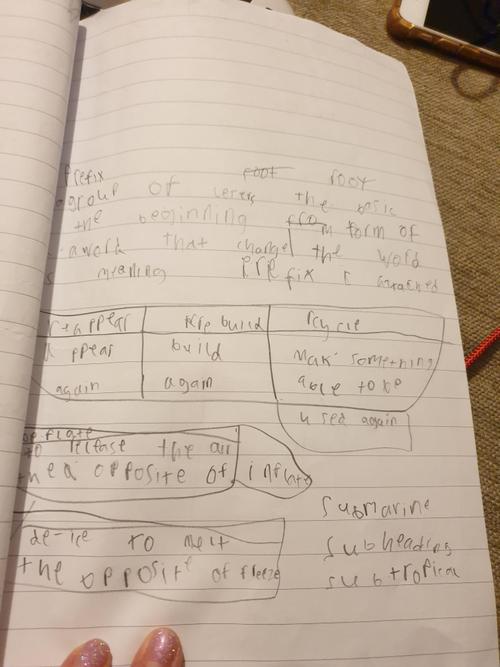 Prefix root root
group of leters the basic
the beginning from form of
a word that changes the word
meaning prefix attached
reappear rebuild rcycle
appear build make something
again again able to be
used again
to release the air
the opposite of inflate
de-ice to melt
the opposite of freeze
submarine
subheading
subtropical